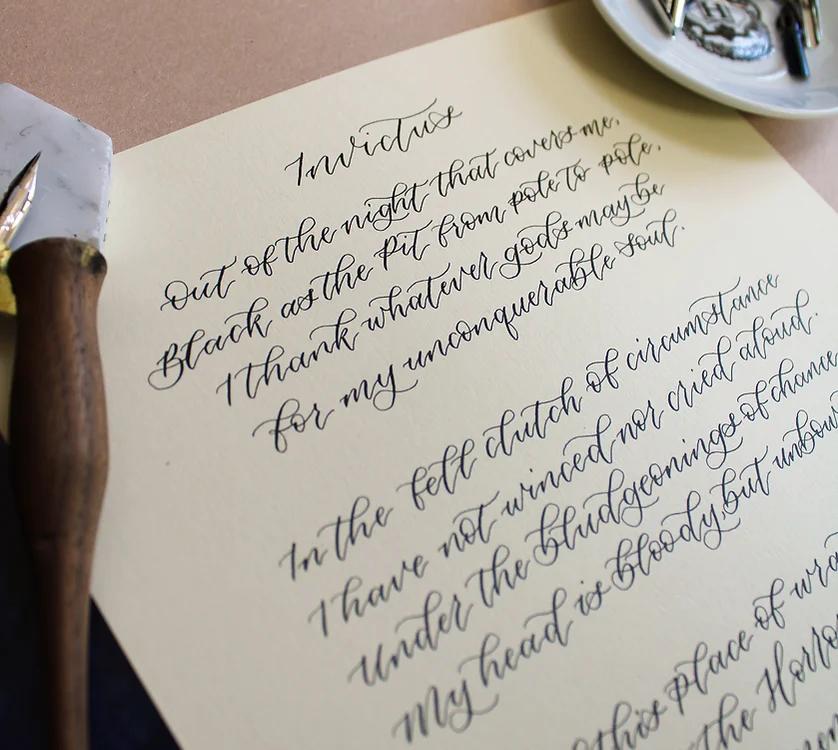 Invictus
Out of the night that covers me,
Black as the Pit from pole to pole,
I thank whatever gods may be
for my unconquerable soul.
In the fell clutch of circumstance
I have not winced nor cried aloud.
Under the bludgeonings of chance
My head is bloody, but
this place of
the